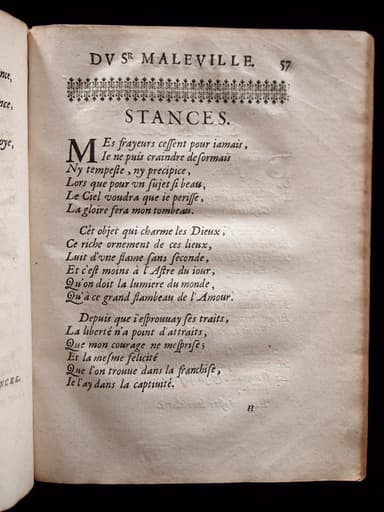 DV SR MALEVILLE. 57
STANCES.
MEs frayeurs cessent pour iamais,
Ie ne puis craindre desormais
Ny tempeste, ny precipice,
Lors que pour vn sujet si beau,
Le Ciel voudra que ie perisse,
La gloire sera mon tombeau.
Cét objet qui charme les Dieux,
Ce riche ornement de ces lieux,
Luit d'vne flame sans seconde,
Et c'est moins à l'Astre du iour,
Qu'on doit la lumiere du monde,
Qu'à ce grand flambeau de l'Amour.
Depuis que i'esprouuay ses traits,
La liberté n'a point d'attraits,
Que mon courage ne mesprise;
Et la mesme felicité
Que l'on trouue dans la franchise,
Ie l'ay dans la captiuité.
H